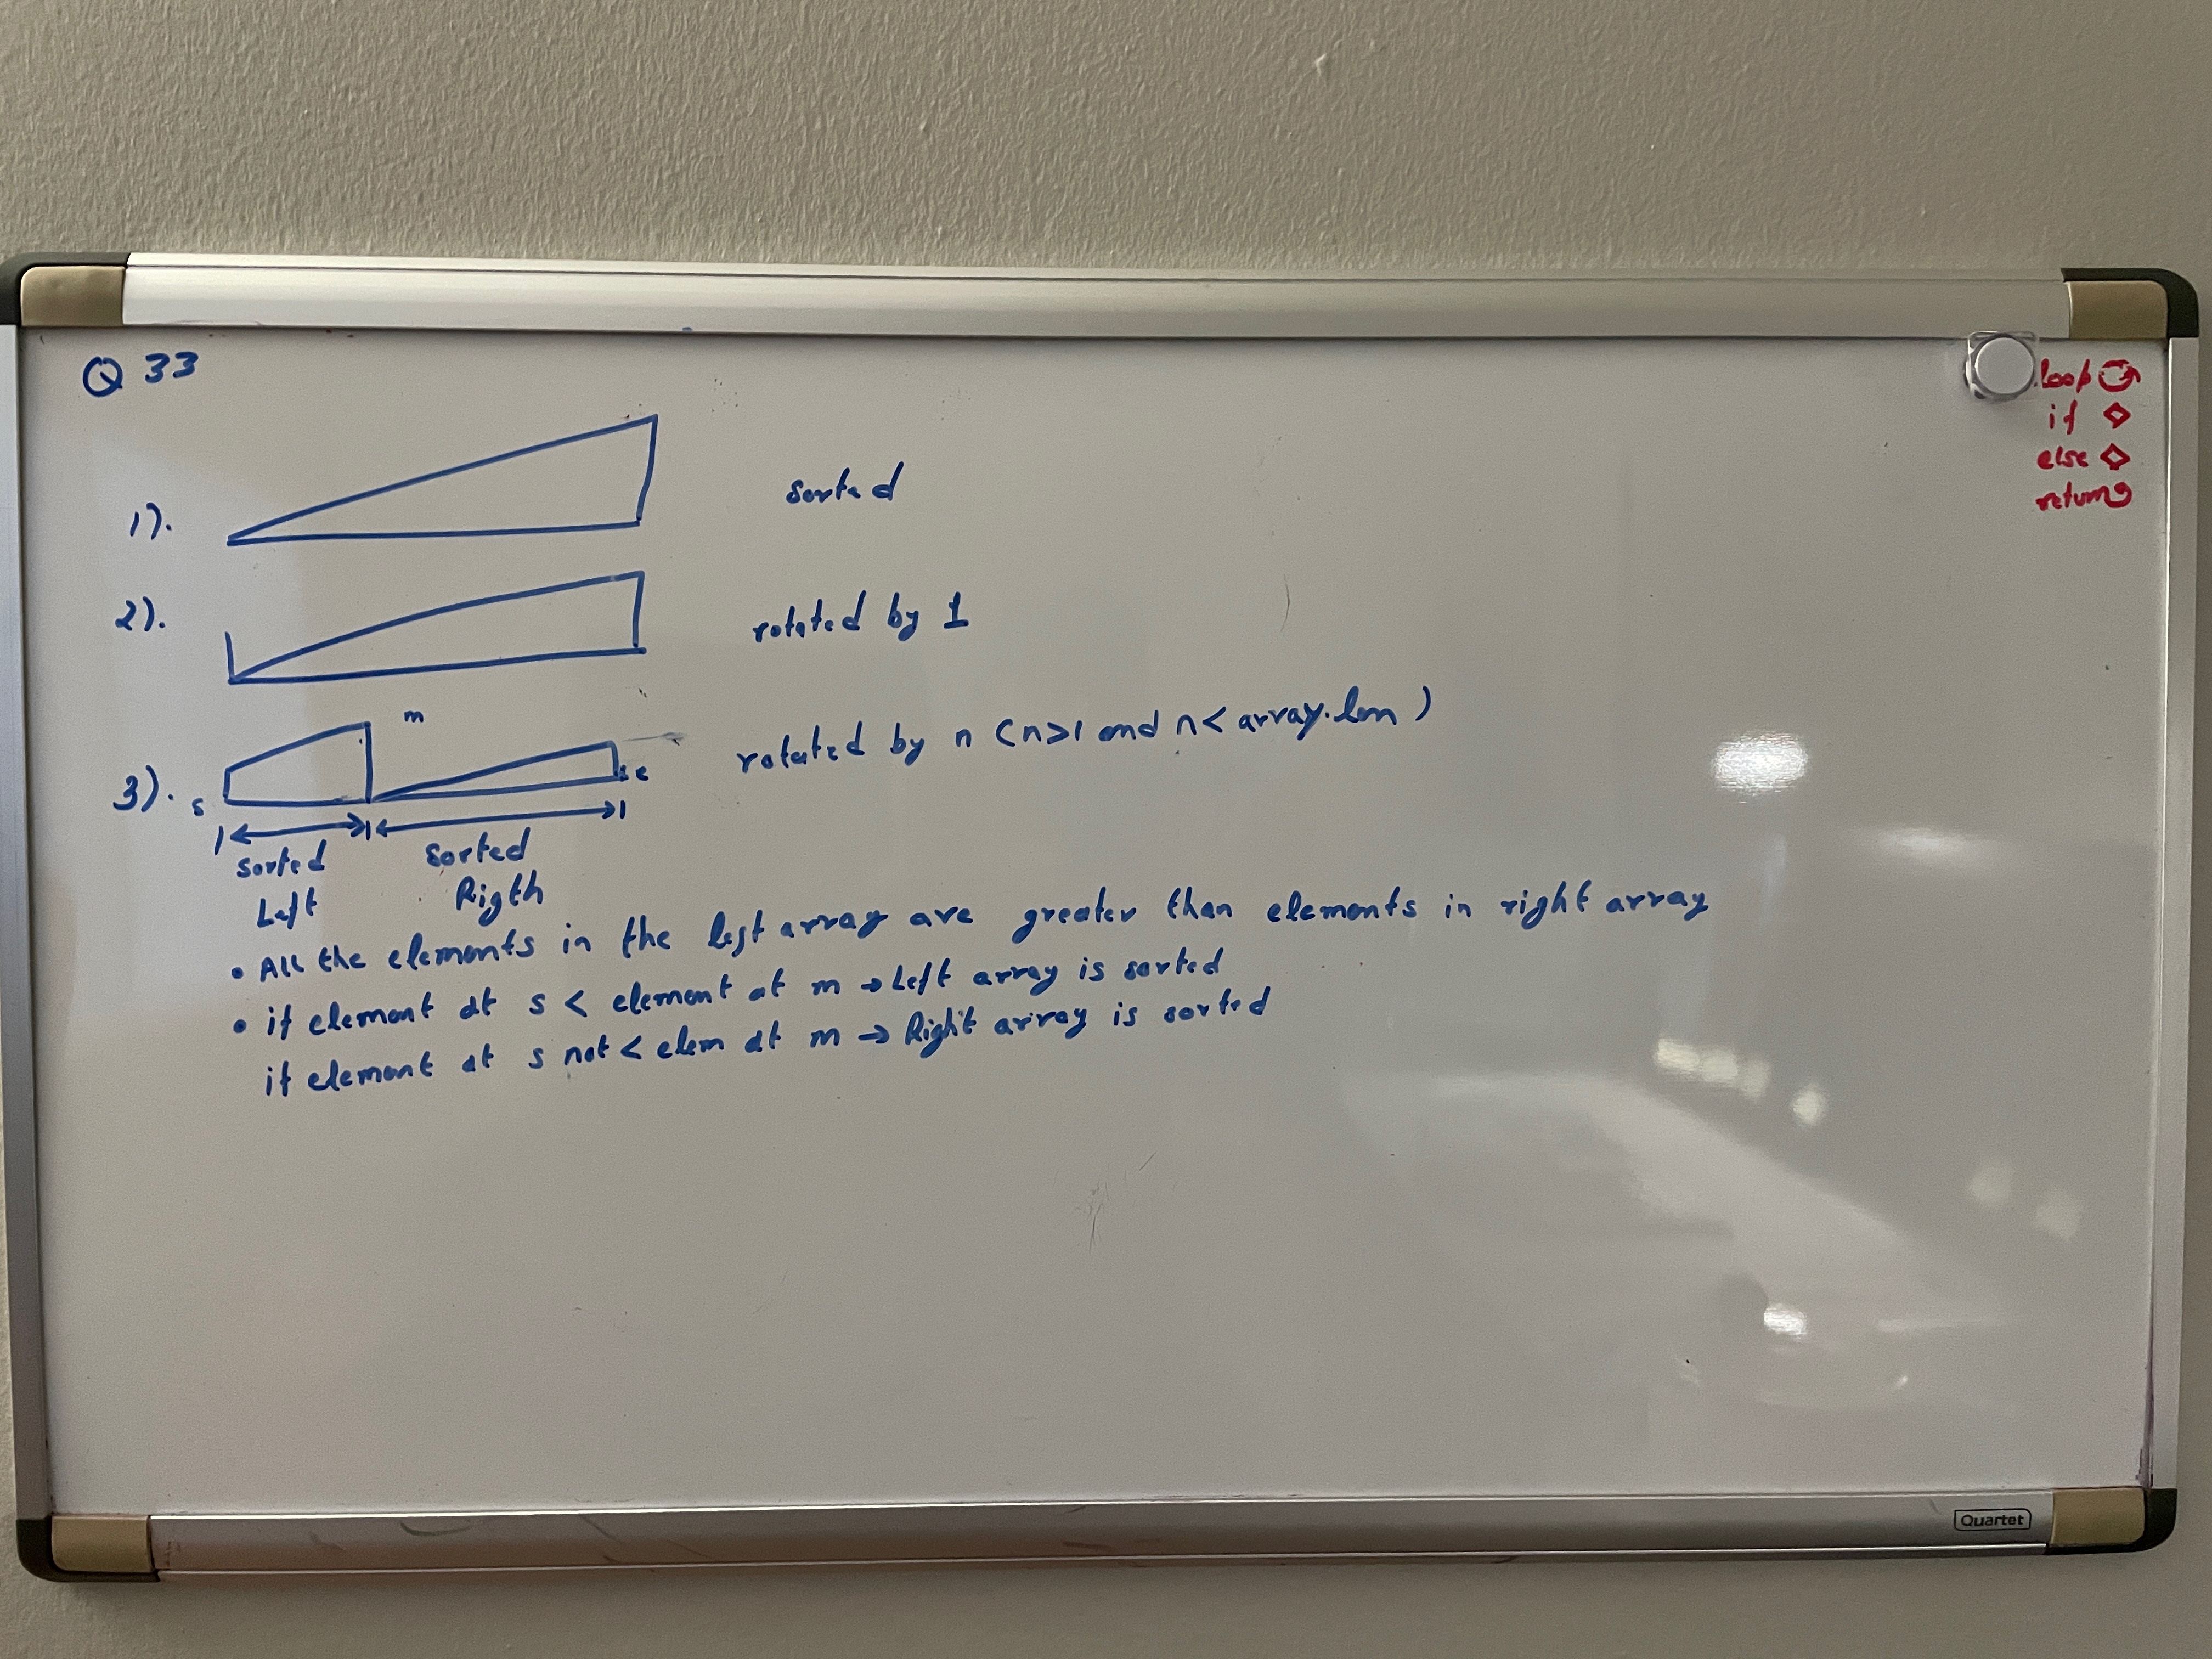 Q 33
loop
if
else
return
1). sorted
2). rotated by 1
m
3). s e rotated by n (n>1 and n< array.len)
sorted Left
sorted Rigth
• All the elements in the left array are greater than elements in right array
• if element at s < element at m → Left array is sorted
if element at s not < elem at m → Right array is sorted
Quartet